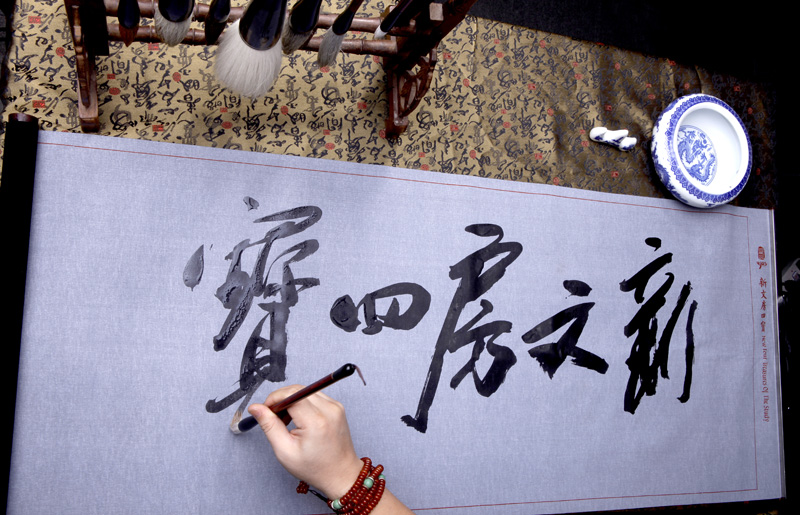 新文房四寶
新文房四寶 New Four Treasures Of The Study